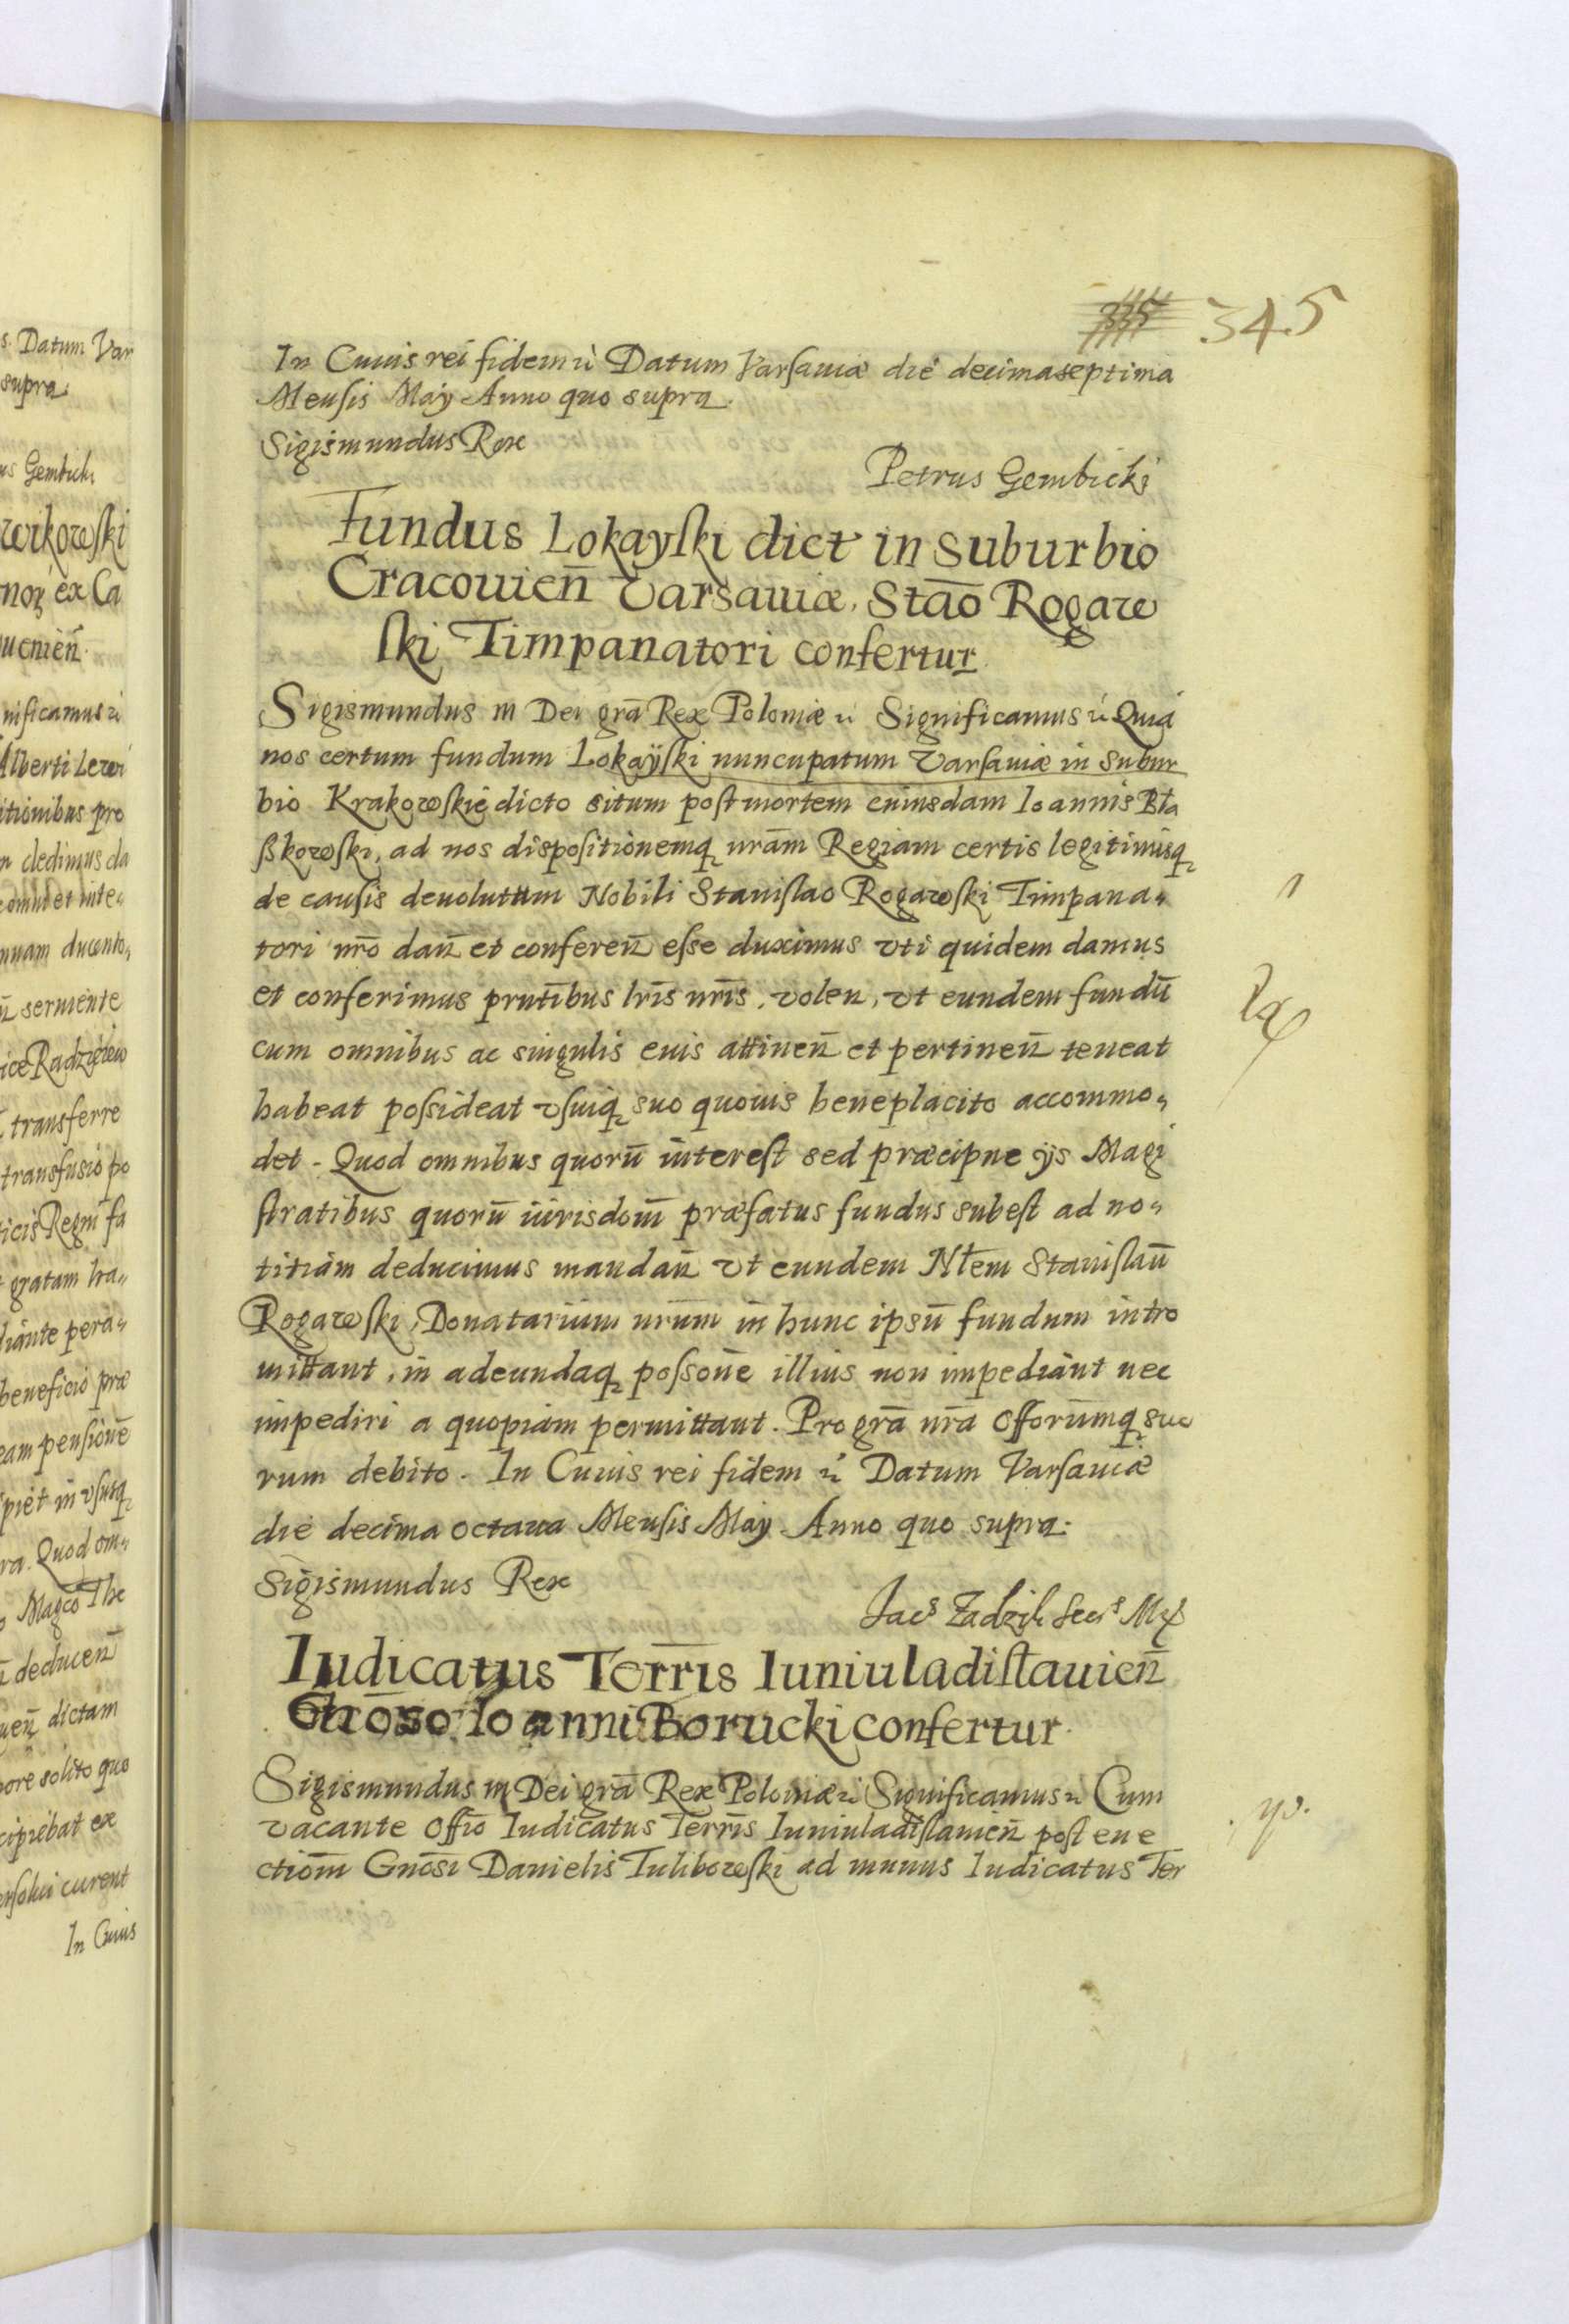 s. Datum Var
supra
us Gembick,
wikowſki
noꝝ ex Ca
uenien̄
nificamus
Alberti Lewi
itionibus pro
n dedimus da
comu et inte„
nuam ducento„
seruiente
ice Radzieiow
transferre
transfusio po
icis Regni fa
gratam ha„
diante pera„
beneficio præ
eam pensionē
piet in vſusq
ra. Quod om„
Magco The
deducen̄
uen̄ dictam
pore solito quo
cipiebat ex
erſolui curent
In Cuius
335 345
In Cuius rei fidem ɤ Datum Varſauiæ die decimaseptima
Menſis Maÿ Anno quo supra.
Sigismundus Rex
Petrus Gembicki
Fundus Lokayſki dict in suburbio
Cracouien̄ Varsauiæ, Stāo Rogaw
ſki Timpanatori confertur.
Sigismundus III Dei grā Rex Poloniæ ɤ Significamus ɤ Quia
nos certum fundum Lokaÿſki nuncupatum Varſauiæ in subur
bio Krakowſkie dicto situm poſt mortem cuiusdam Ioannis Bła
ßkowſki, ad nos diſpoſitionemq nrām Regiam certis legitimisq
de cauſis deuolutum Nobili Staniſlao Rogawſki Timpana„
tori nrō dan̄ et conferen̄ eſse duximus vti quidem damus
et conferimus prntībus lrīs nrīs, volen, vt eundem fundū
cum omnibus ac singulis euis attinen̄ et pertinen̄ teneat
habeat poſsideat vſuiq suo quouis beneplacito accommo„
det. Quod omnibus quorū intereſt sed præcipue ÿs Magi
ſtratibus quorū iurisdom̄ præfatus fundus subeſt ad no„
titiam deducimus mandan̄ vt eundem Nłem Staniſlaū
Rogawſki, Donatarium nrūm in hunc ipsū fundum intro
mittant, in adeundaq poſsonē illius non impediant nec
impediri a quopiam permittant. Pro grā nrā Offorūmq suo
rum debito. In Cuius rei fidem ɤ Datum Varſauiæ
die decima octaua Menſis Maÿ Anno quo supra.
Sigismundus Rex
Jacs Zadzik Secrs Mł
Iudicatus Terrīs Iuniuladiſlauien̄
Gnōso Ioanni Borucki confertur.
Sigismundus III Dei grā Rex Poloniæ ɤ Significamus ɤ Cum
vacante Offīo Iudicatus Terrīs Iuniuladiſlauien̄ poſt eue
ctiom̄ Gnōsi Danielis Tuliboꝛwſki ad munus Iudicatus Ter